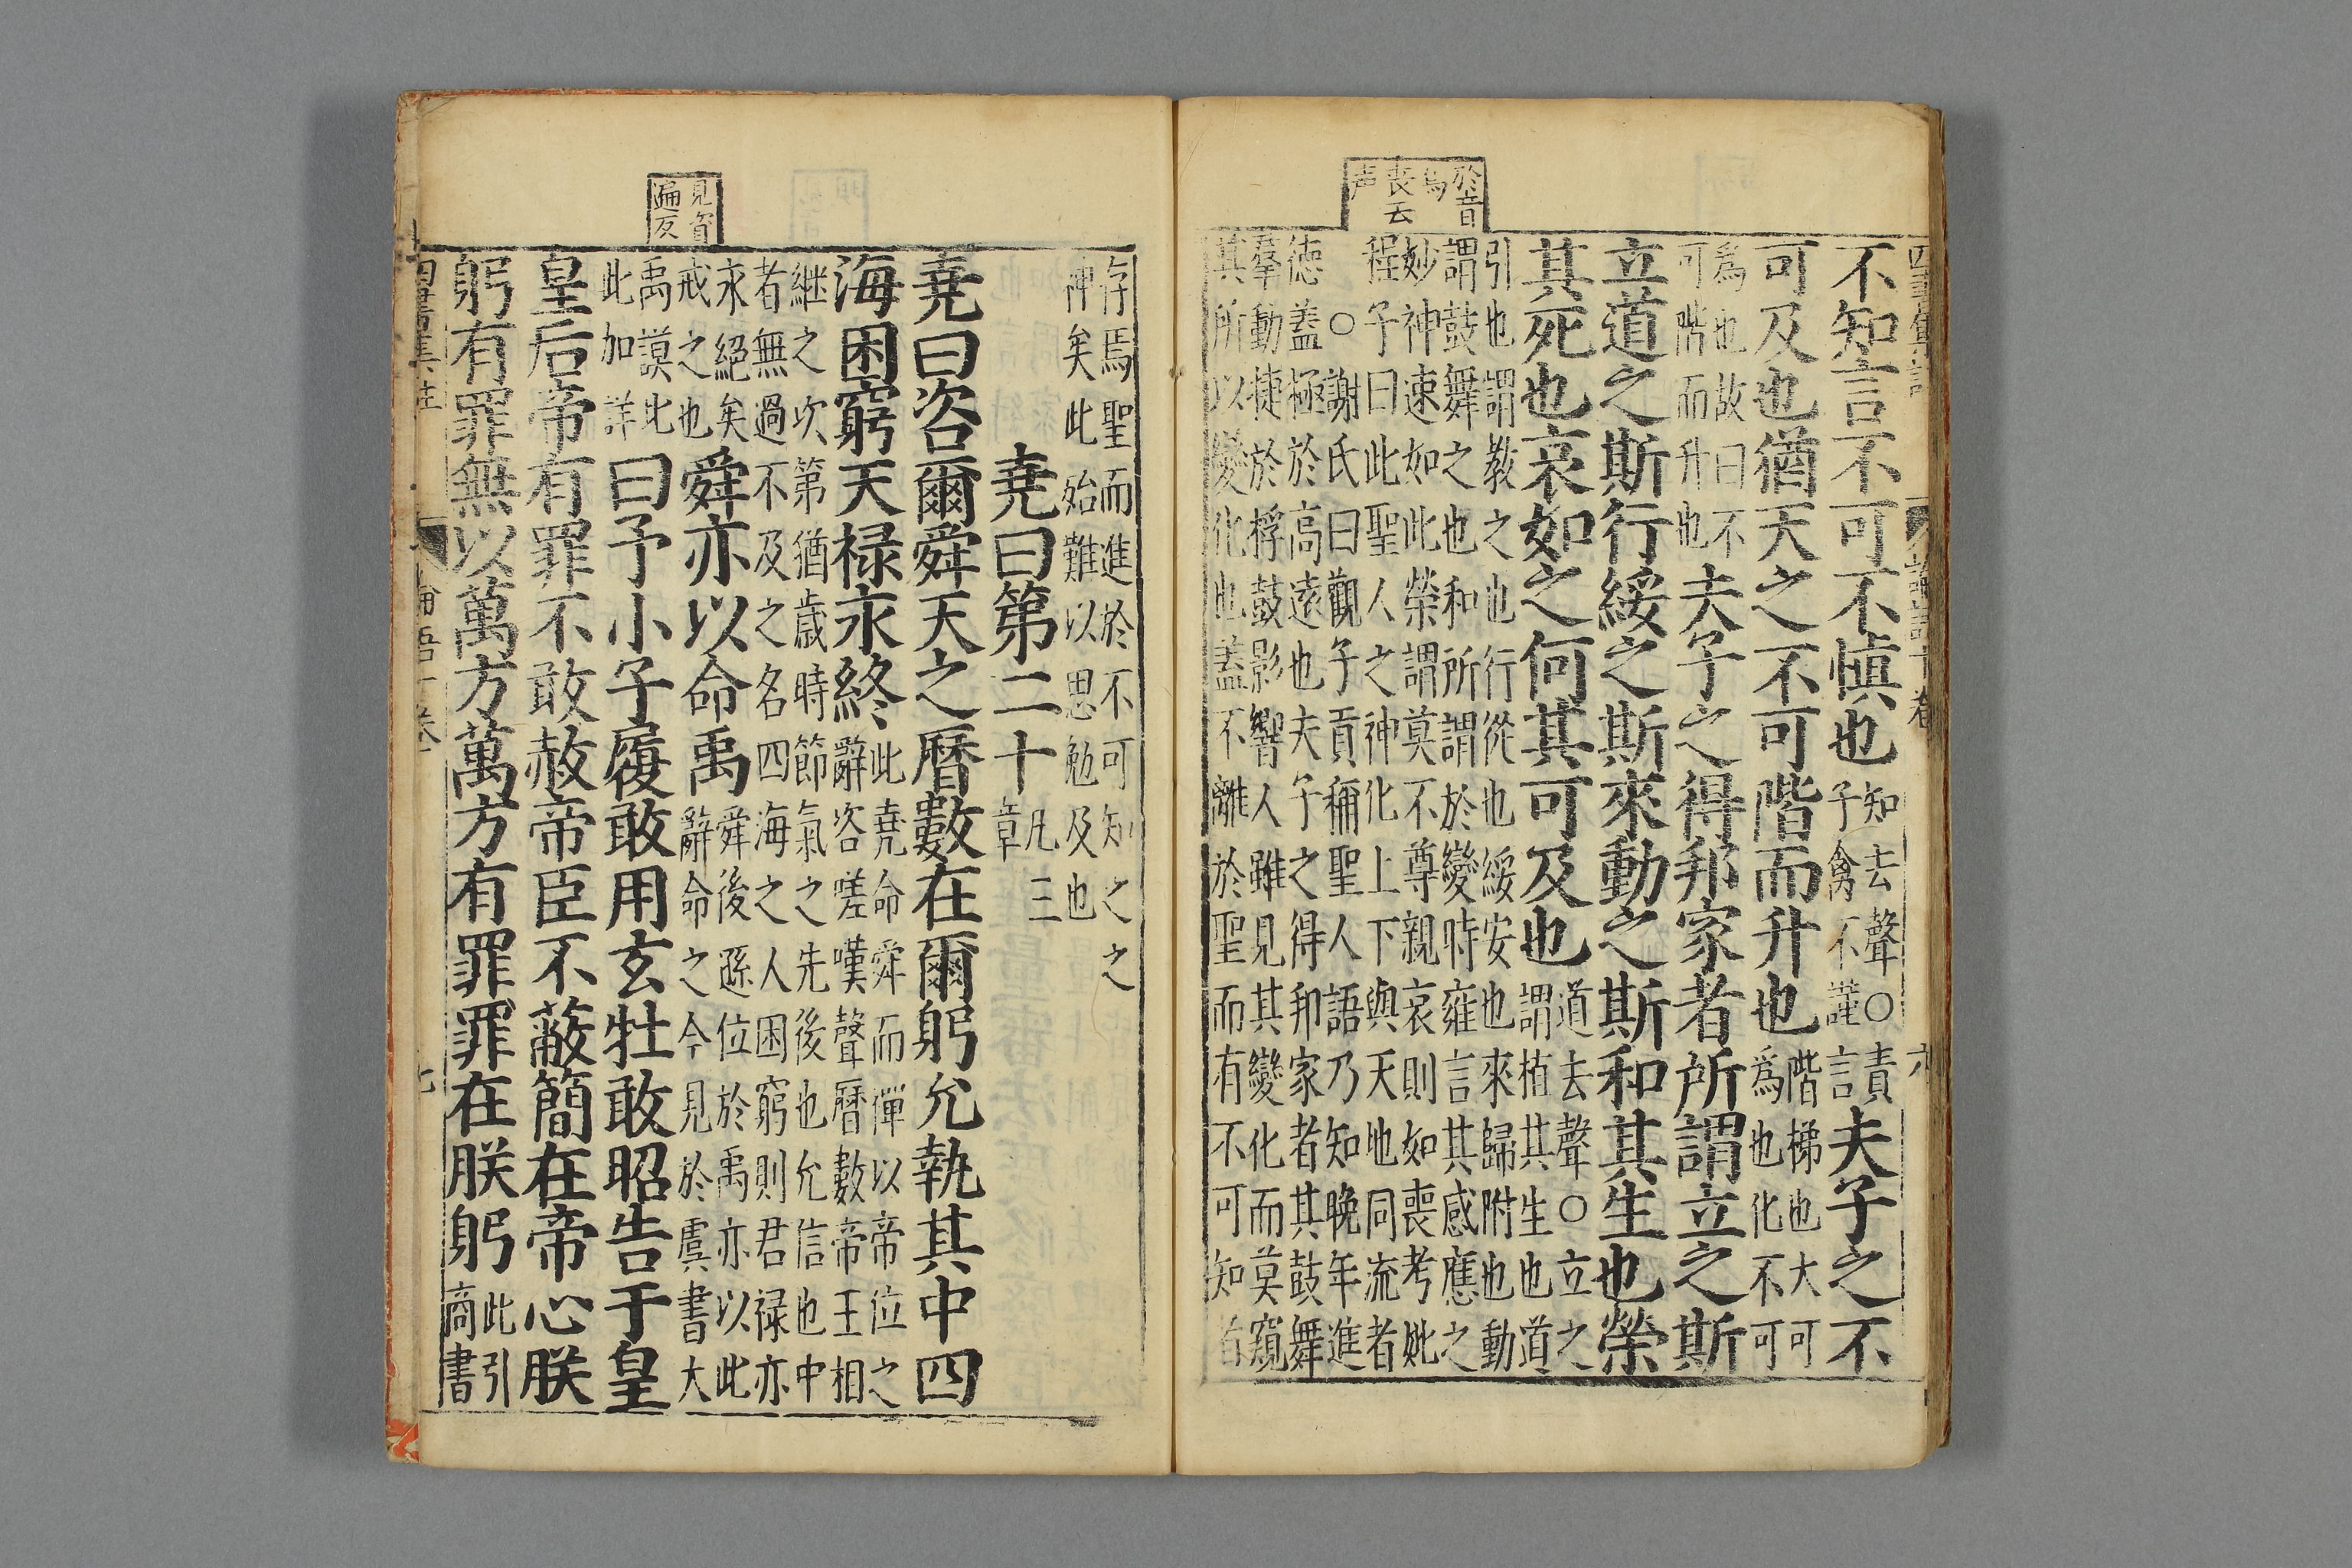 於音
烏
喪去
声
四書集註 論語十卷 六
不知言不可不愼也知去聲○責子禽不謹言夫子之不
可及也猶天之不可階而升也階梯也大可爲也化不可
爲也故曰不可階而升也夫子之得邦家者所謂立之斯
立道之斯行綏之斯來動之斯和其生也榮
其死也哀如之何其可及也道去聲○立之謂植其生也道
引也謂教之也行從也綏安也來歸附也動
謂鼓舞之也和所謂於變時雍言其感應之
妙神速如此榮謂莫不尊親哀則如喪考妣
程子曰此聖人之神化上下與天地同流者
○謝氏曰觀子貢稱聖人語乃知晚年進
德蓋極於高遠也夫子之得邦家者其鼓舞
羣動捷於桴鼓影響人雖見其變化而莫窺
其所以變化也蓋不離於聖而有不可知者
見賢
遍反
存焉聖而進於不可知之之
神矣此殆難以思勉及也
堯曰第二十凡三章
堯曰咨爾舜天之曆數在爾躬允執其中四
海困窮天禄永終此堯命舜而禪以帝位之辭咨嗟嘆聲曆數帝王相
継之次第猶歳時節氣之先後也允信也中
者無過不及之名四海之人困窮則君禄亦
永絕矣戒之也舜亦以命禹舜後遜位於禹亦以此辭命之今見於虞書大
禹謨比此加詳曰予小子履敢用玄牡敢昭告于皇
皇后帝有罪不敢赦帝臣不蔽簡在帝心朕
躬有罪無以萬方萬方有罪罪在朕躬此引商書
四書集註 論語十卷 七